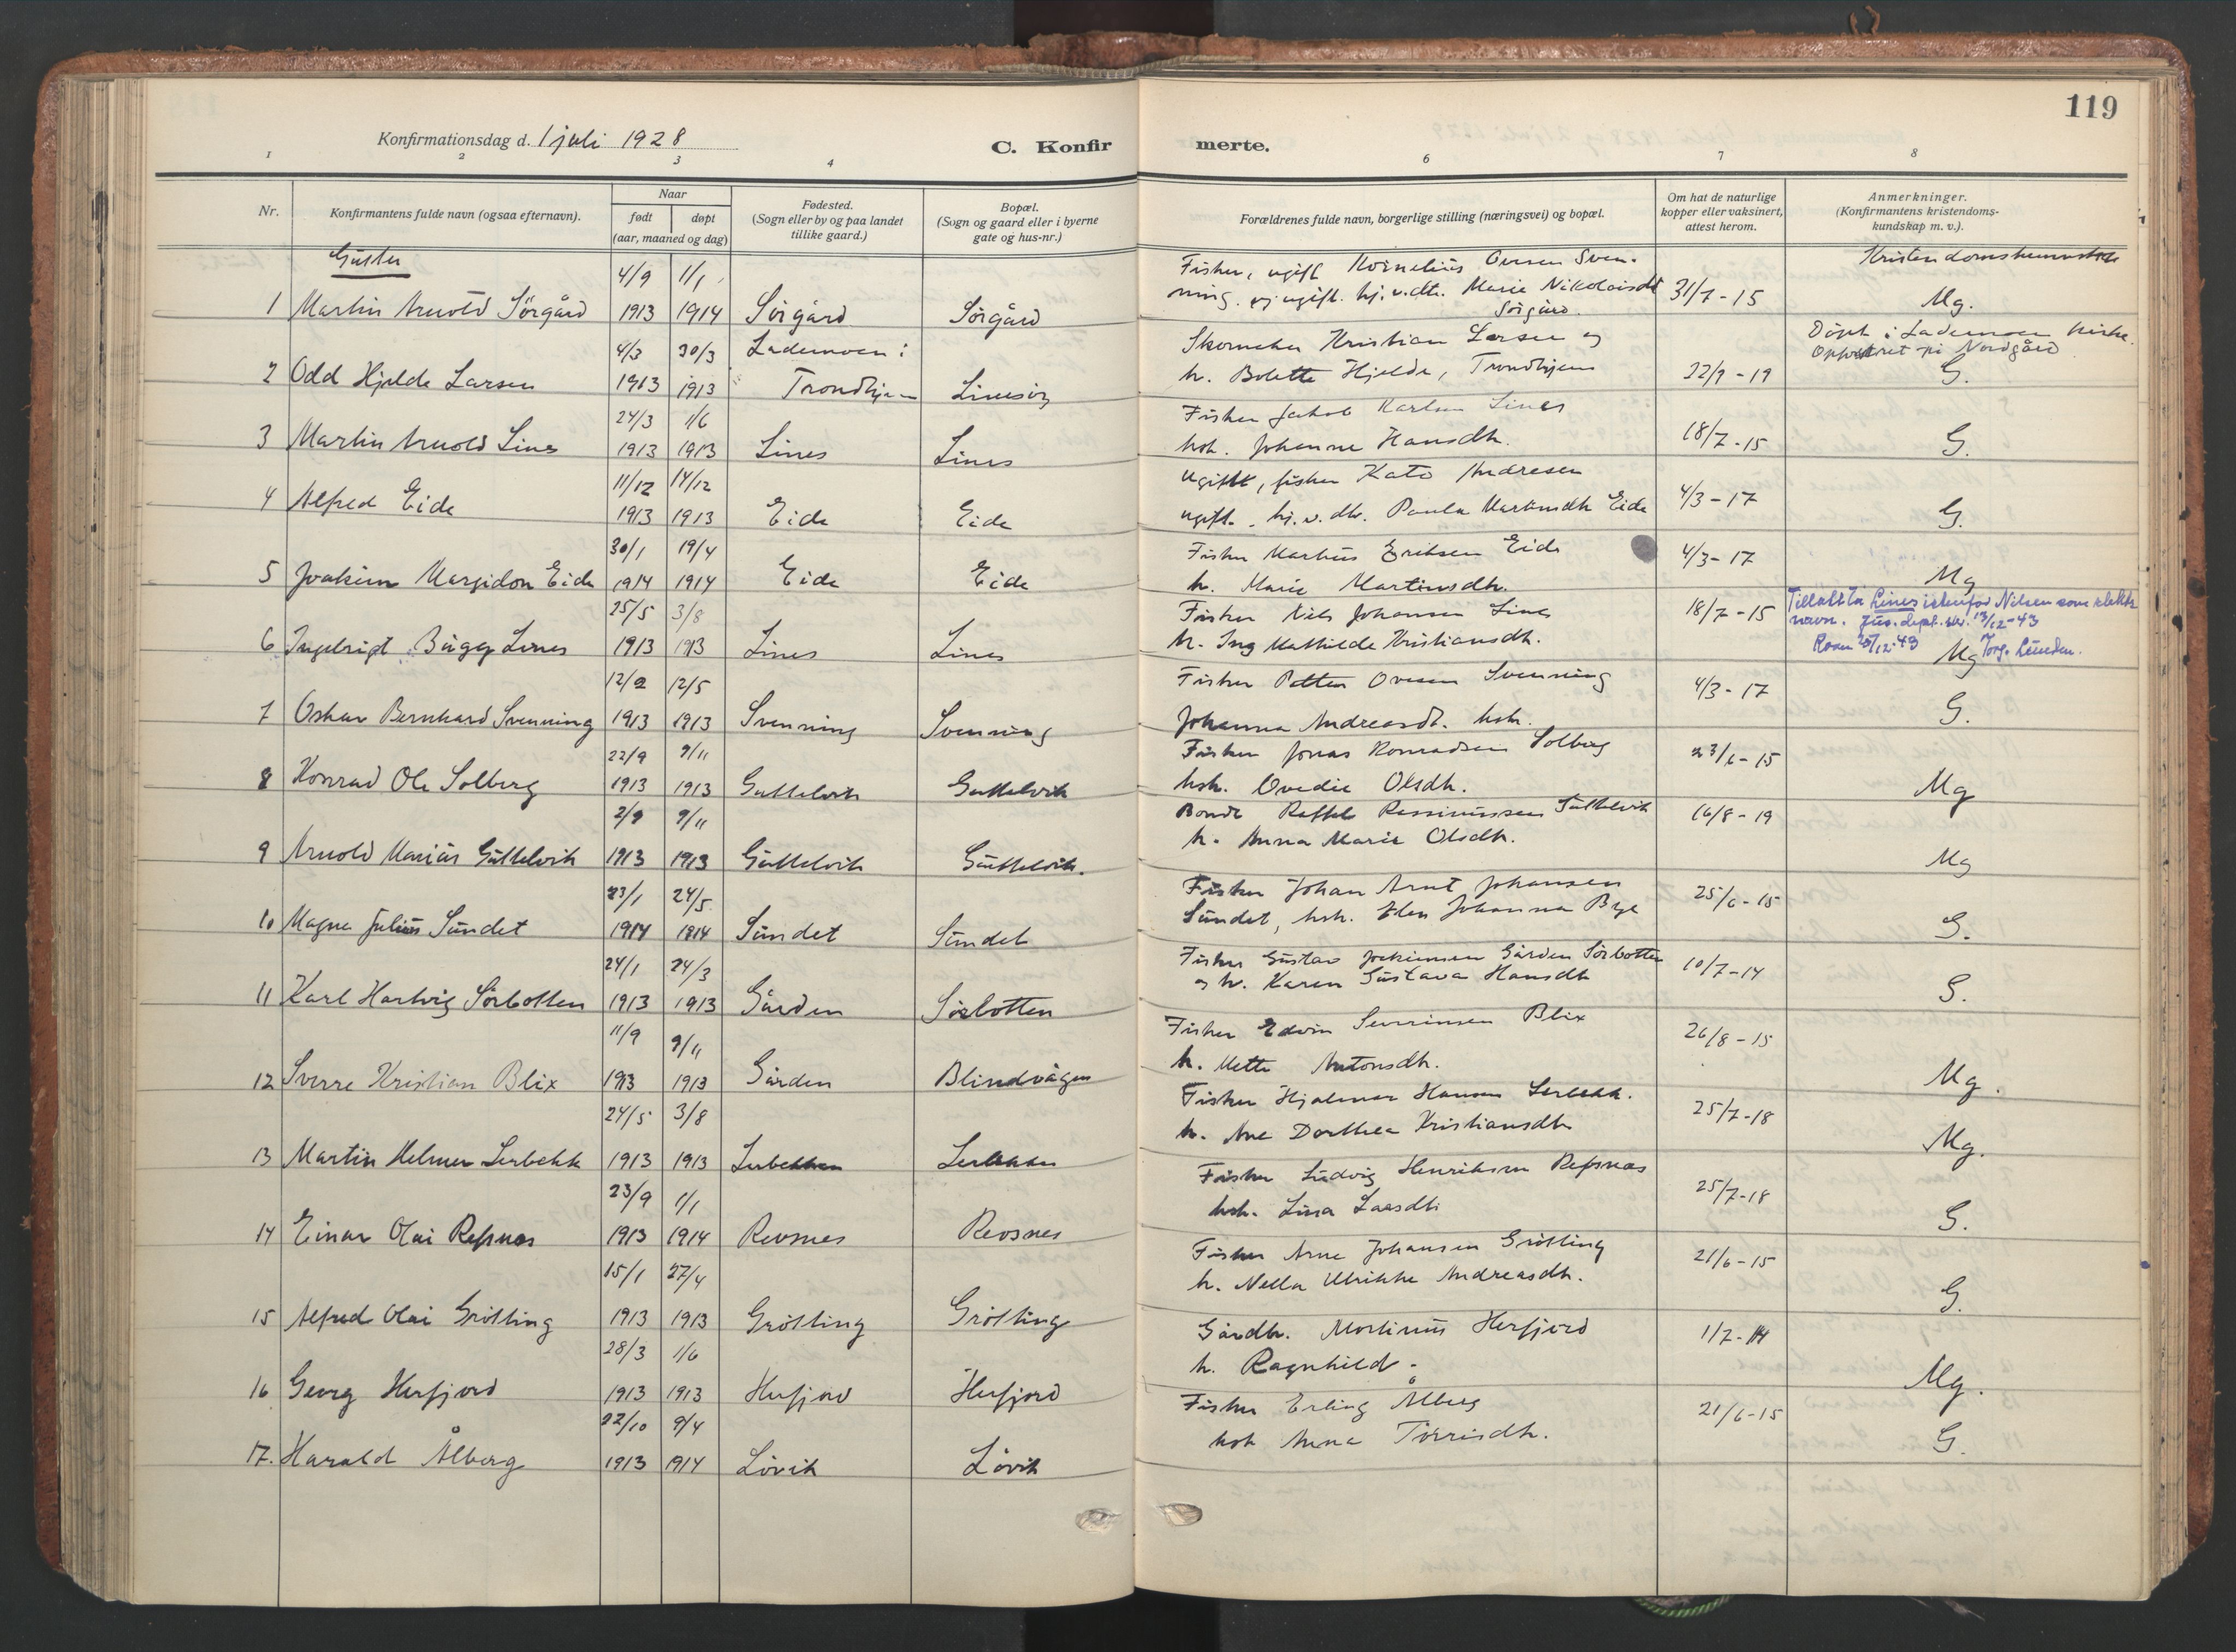 119
Konfirmationsdag d. 1 juli 1928
C. Konfir merte.
1 2 3 4 6 7 8
Nr.
Konfirmantens fulde navn (ogsaa efternavn).
Naar
født døpt
(aar, maaned og dag)
Fødested.
(Sogn eller by og paa landet
tillike gaard.)
Bopæl.
(Sogn og gaard eller i byerne
gate og hus-nr.)
Forældrenes fulde navn, borgerlige stilling (næringsvei) og bopæl.
Om hat de naturlige
kopper eller vaksinert,
attest herom.
Anmerkninger.
(Konfirmantens kristendoms-
kundskap m. v.).
Gutter
4/9 1/1 Fisker, ugift Kornelius Ovesen Sven-
1 Martin Arnold Sörgård 1913 1914 Sörgård Sörgård ning. og ugift. hj.v.dtr. Marie Nikolaisdt Sörgård. 31/7-15 Mg.
4/3 30/3 Lademoen i Skomaker Kristian Larsen og Döpt i Lademoen kirke.
Oppvokset på Nordgård
2 Odd Hjelde Larsen 1913 1913 Trondhjem Linesöy h. Bolette Hjelde, Trondhjem 22/9-19 G.
24/3 1/6 Fisker Jakob Karlsen Lines
3 Martin Arnold Lines 1913 1913 Lines Lines hsh. Johanne Hansdtr. 18/7-15 G.
11/12 14/12 ugift, fisker Kato Andresen
4 Alfred Eide 1913 1913 Eide Eide ugift. hj.v.dtr. Paula Martinsdtr Eide 4/3-17 G.
30/1 19/4 Fisker Markus Eriksen Eide
5 Joakim Margidon Eide 1914 1914 Eide Eide h. Marie Martinsdtr. 4/3-17 Mg
25/5 3/8 Fisker Nils Johansen Lines 18/7-15 Tillatt ta Lines istenfor Nilsen som slekts
navn. Jus.dept. skr. 13/12-43
6 Ingebrigt Bügge Lines 1913 1913 Lines Lines h. Ing Mathilde Kristiansdtr. Mg
Roan 20/12-43 Torg. Linden.
12/2 12/5 Fisker Petter Ovesen Svenning
7 Oskar Bernhard Svenning 1913 1913 Svenning Svenning Johanna Andreasdt. hsh. 4/3-17 G.
22/9 9/11 Fisker Jonas Konradsen Solberg
8 Konrad Ole Solberg 1913 1913 Guttelvik Guttelvik hsh. Ovedie Olsdtr. 23/6-15 Mg
2/9 9/11 Bonde Reffel Rasmussen Guttelvik
9 Arnold Marius Guttelvik 1913 1913 Guttelvik Guttelvik. h. Anna Marie Olsdtr. 16/8-19 Mg
23/1 24/5 Fisker Johan Arnt Johansen
10 Magne Julius Sundet 1914 1914 Sundet Sundet Sundet, hsh. Elen Johanna Bye 25/6-15 G.
24/1 24/3 Fisker Gustav Joakimsen Gården Sörbotten
11 Karl Hartvig Sörbotten 1913 1913 Gården Sörbotten og h. Karen Gustava Hansdtr 10/7-14 G.
11/9 9/11 Fisker Edvin Severinsen Blix
12 Sverre Kristian Blix 1913 1913 Gården Blindvågen h. Mette Antonsdtr. 26/8-15 Mg.
24/5 3/8 Fisker Hjalmar Hansen Lerbekk.
13 Martin Helmer Lerbekk 1913 1913 Lerbekken Lerbekken h. Ane Dorthea Kristiansdtr 25/7-18 Mg.
23/9 1/1 Fisker Ludvig Henriksen Refsnes
14 Einar Olai Refsnes 1913 1914 Revsnes Revsnes hsh. Lina Larsdtr 25/7-18 G.
15/1 27/4 Fisker Arne Johansen Grötting
15 Alfred Olai Grötting 1913 1913 Grötting Grötting h. Nella Ulrikke Andreasdtr. 21/6-15 G.
28/3 1/6 Gårdbr. Mortinus Herfjord
16 Georg Herfjord 1913 1913 Herfjord Herfjord h. Ragnhild 1/7-14 Mg.
22/10 9/4 Fisker Erling Ålberg
17. Harald Ålberg 1913 1914 Lövik Lövik hsh Anna Törrisdtr. 21/6-15 G.